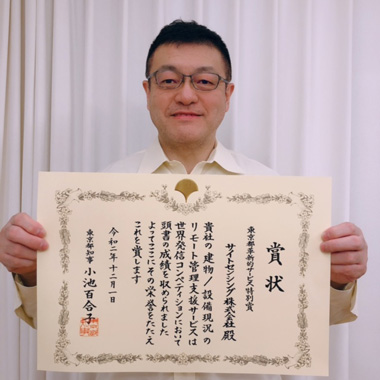 賞状
東京都革新的サービス特別賞
サイトセンシング株式会社 殿
貴社の建物/設備現況の
リモート管理支援サービスは
世界発信コンペティションにおいて
頭書の成績を収められました
よってここにその栄誉をたたえ
これを賞します
令和二年十二月一日
東京都知事 小池百合子